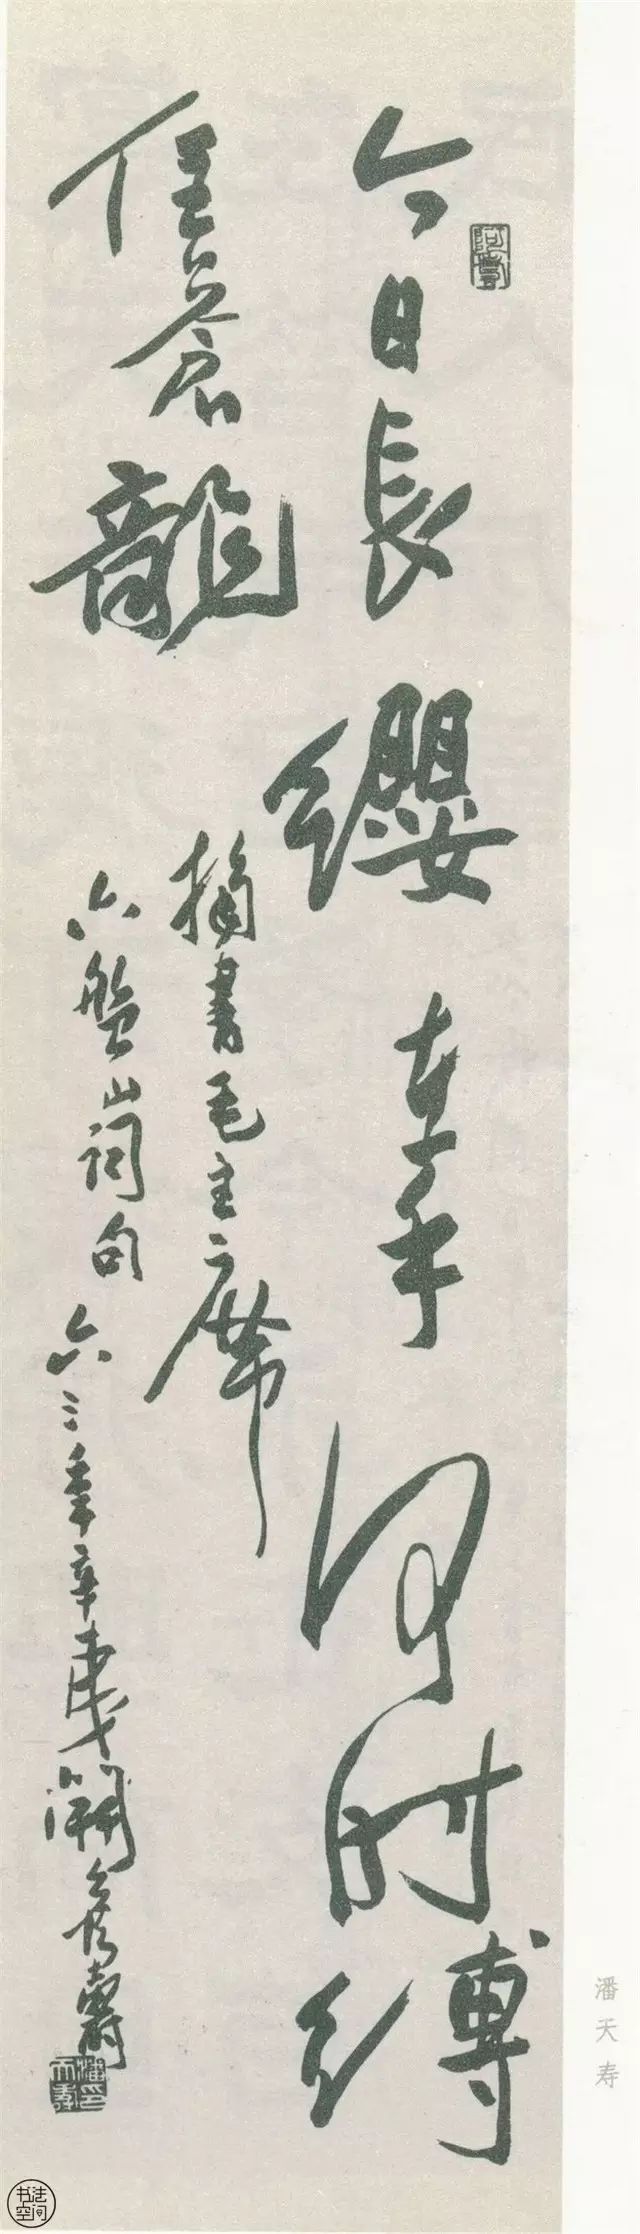 今日長纓在手何时縛
住蒼龍
摘書毛主席
六盤山詞句 六三年辛夷開 壽
阿壽
潘天壽印
潘天寿
书法空间